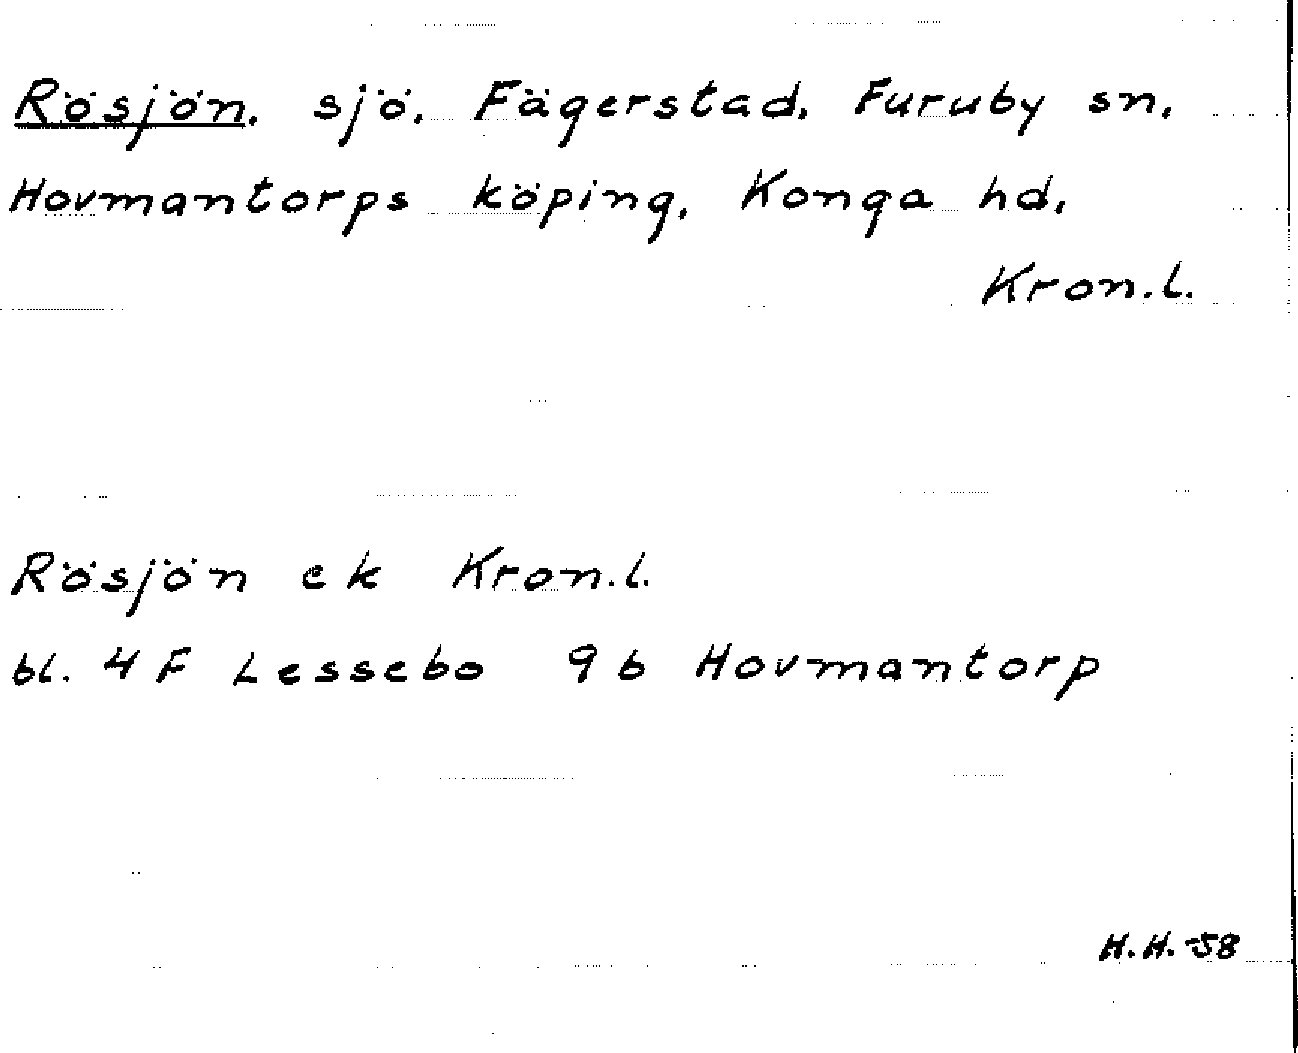 Rösjön, sjö, Fägerstad, Furuby sn,
Hovmantorps köping, Konga hd,
Kron.l.
Rösjön ek Kron.l.
bl. 4 F Lessebo 9 b Hovmantorp
H.H. 58